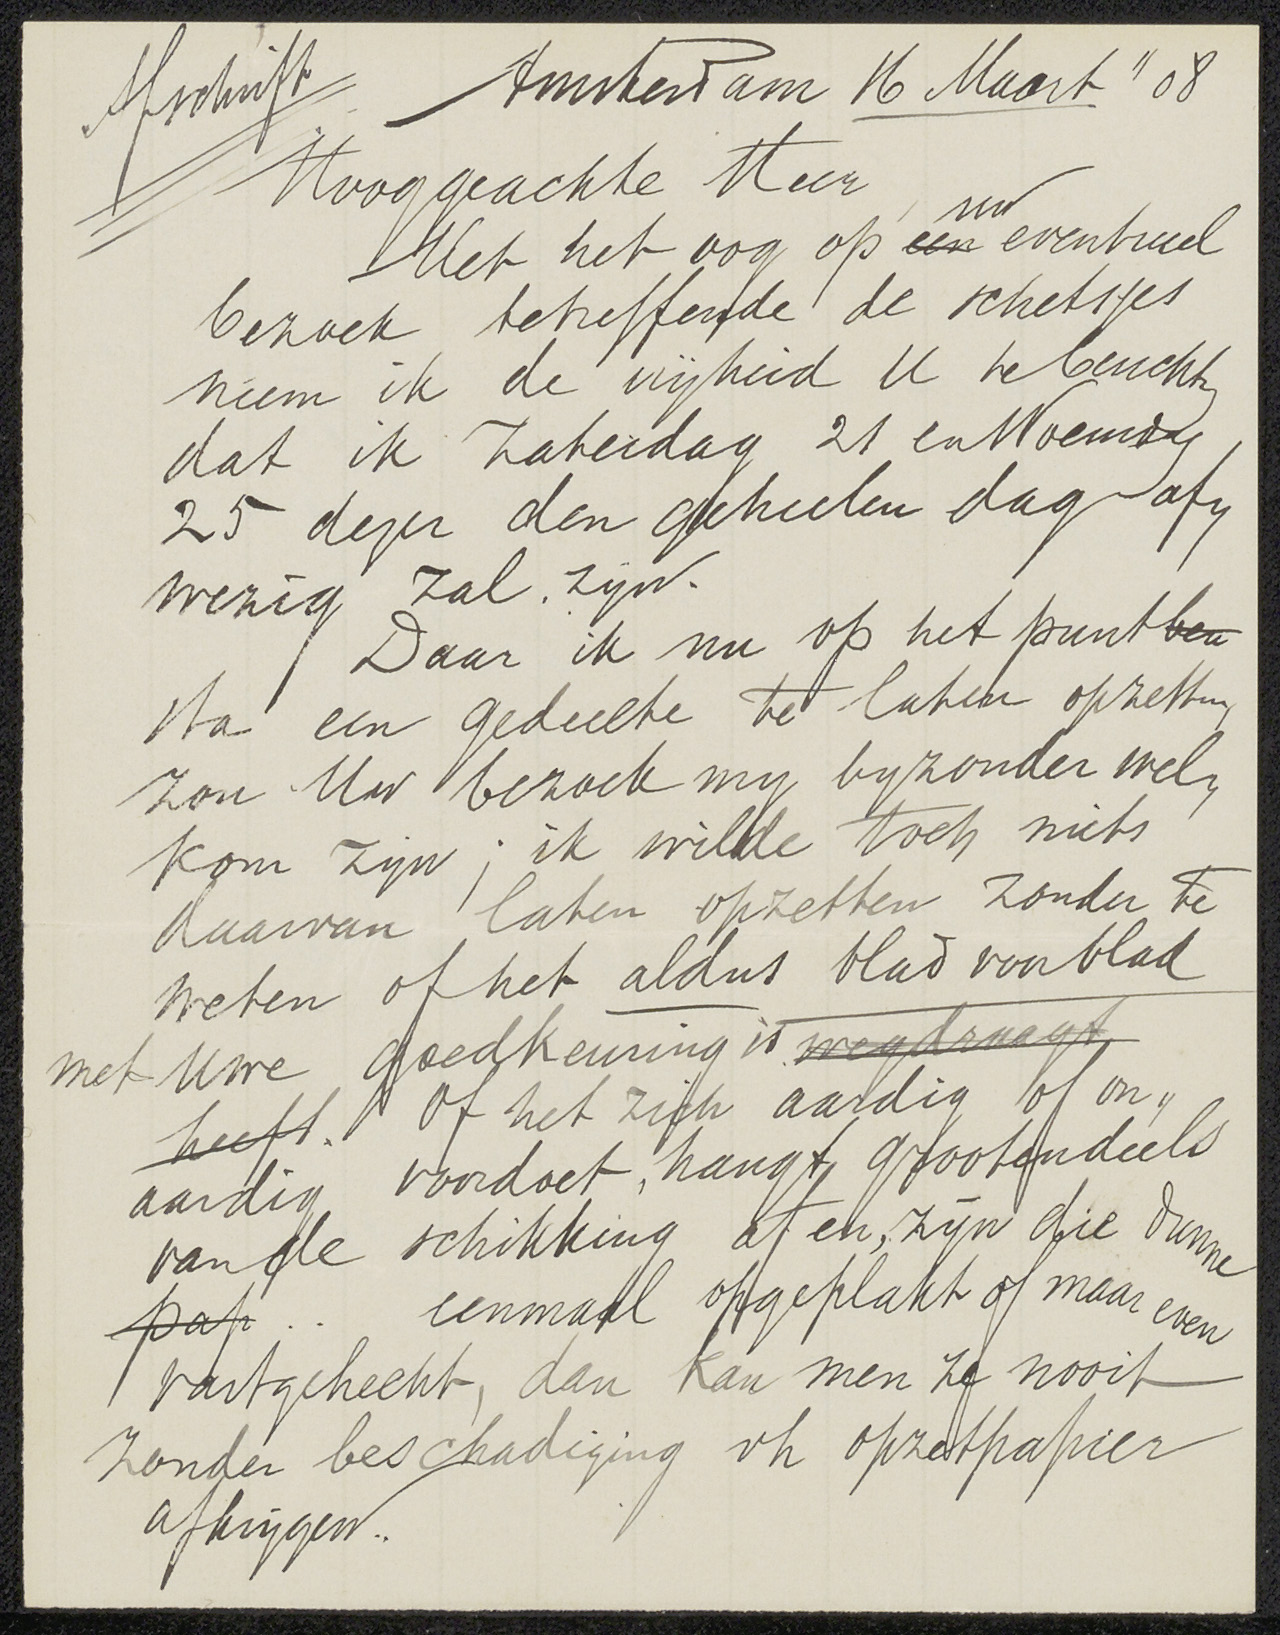 Afschrift Amsterdam 16 Maart "08
Hooggeachte Heer,
uw
Met het oog op een eventueel
bezoek betreffende de schetsjes
neem ik de vrijheid U te berichten
dat ik Zaterdag 21 en Woensdag
25 dezer den geheelen dag af„
wezig zal zijn.
Daar ik nu op het punt ben
sta een gedeelte te laten opzetten,
zou Uw bezoek my byzonder wel„
kom zijn; ik wilde toch niets
daarvan laten opzetten zonder te
weten of het aldus blad voor blad
met Uwe goedkeuring is wegdraagt
heeft. Of het zich aardig of on„
aardig voordoet, hangt grootendeels
van de schikking af en, zijn die dunne
pap .. eenmaal opgeplakt of maar even
vastgehecht, dan kan men ze nooit
zonder beschadiging vh opzetpapier
afkrijgen..